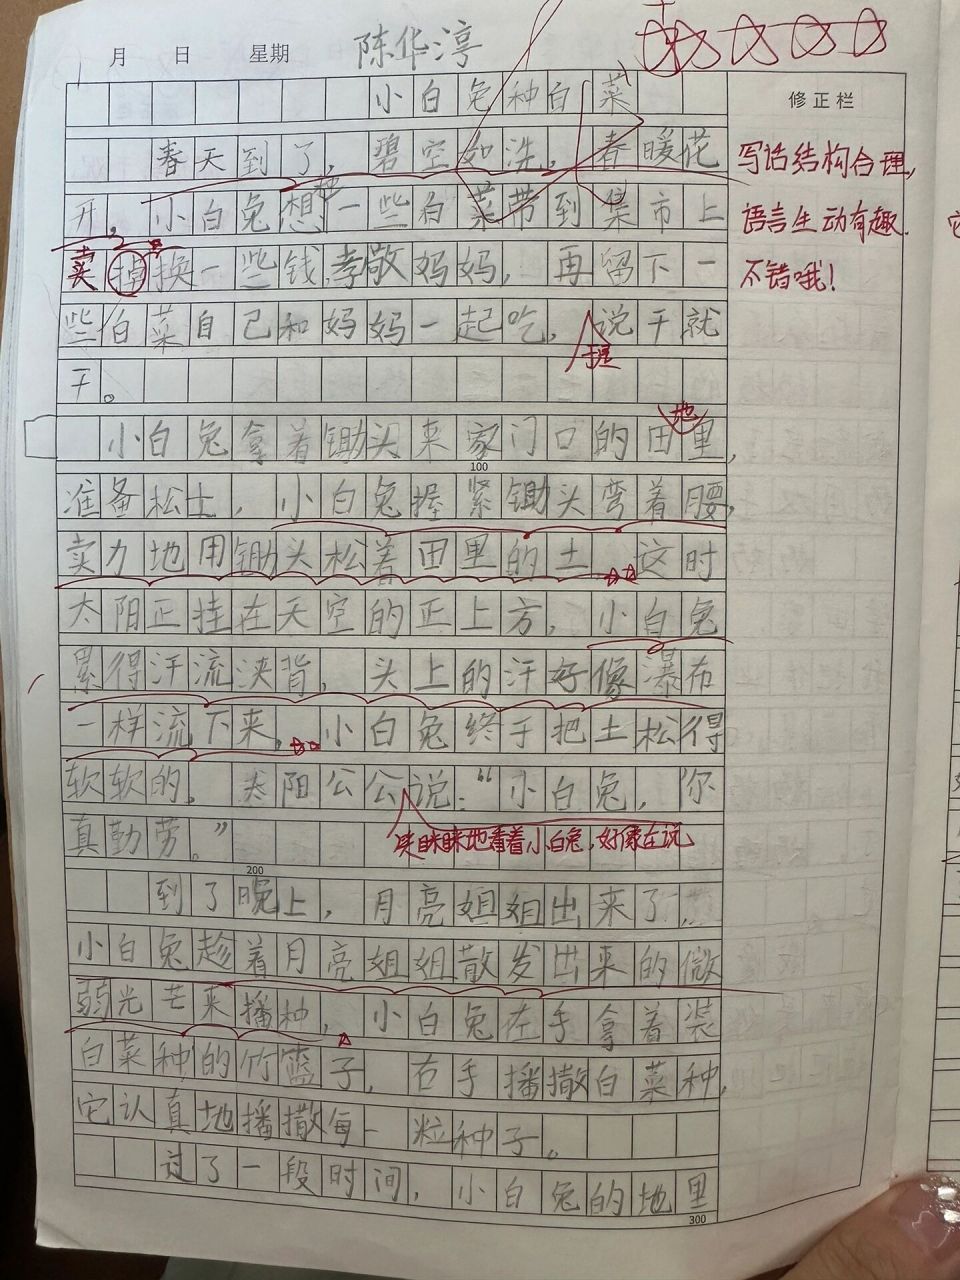 月 日 星期 陈华淳
小白兔种白菜
修正栏
春天到了，碧空如洗，春暖花
写话结构合理，
种
开，小白兔想一些白菜带到集市上
语言生动有趣.
卖掉换一些钱孝敬妈妈，再留下一
不错哦！
些白菜自己和妈妈一起吃，说干就
于是
干。
地
小白兔拿着锄头来家门口的田里，
100
准备松土，小白兔握紧锄头弯着腰，
卖力地用锄头松着田里的土。这时
太阳正挂在天空的正上方，小白兔
累得汗流浃背，头上的汗好像瀑布
一样流下来，小白兔终于把土松得
软软的。太阳公公说：“小白兔，你
真勤劳。”
笑眯眯地看着小白兔，好象在说
200
到了晚上，月亮姐姐出来了，
小白兔趁着月亮姐姐散发出来的微
弱光芒来播种，小白兔左手拿着装
白菜种的竹篮子，右手播撒白菜种，
它认真地播撒每一粒种子。
过了一段时间，小白兔的地里
300